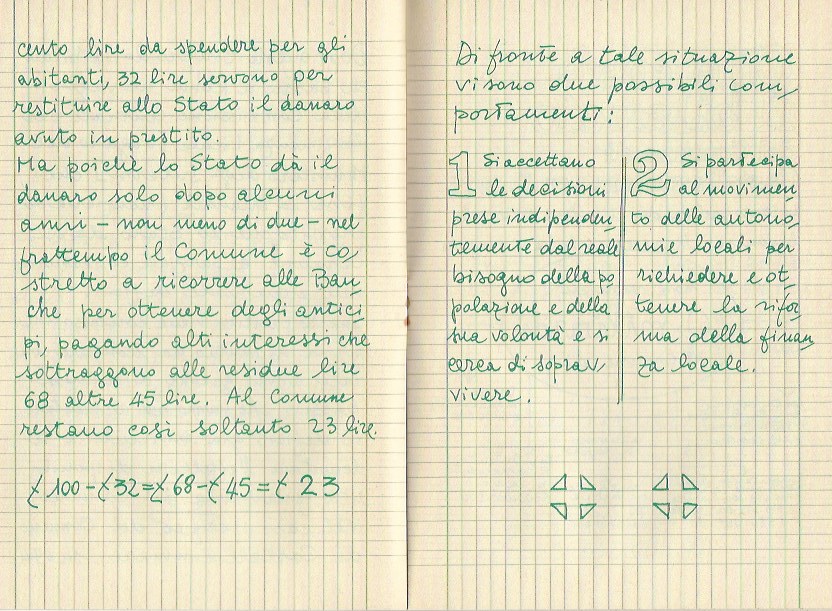 cento lire da spendere per gli
abitanti, 32 lire servono per
restituire allo Stato il danaro
avuto in prestito.
Ma poichè lo Stato dà il
danaro solo dopo alcuni
anni - non meno di due - nel
frattempo il Comune è co
stretto a ricorrere alle Ban
che per ottenere degli antici
pi, pagando alti interessi che
sottraggono alle residue lire
68 altre 45 lire. Al Comune
restano così soltanto 23 lire.
£ 100 - £ 32 = £ 68 - £ 45 = £ 23
Di fronte a tale situazione
vi sono due possibili com
portamenti:
1 Si accettano
le decisioni
prese indipenden
temente dal reale
bisogno della po
polazione e della
sua volontà e si
cerca di soprav
vivere.
2 Si partecipa
al movimen
to delle autono
mie locali per
richiedere e ot
tenere la rifor
ma della finan
za locale.